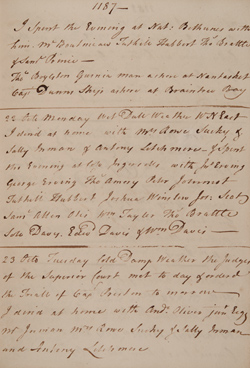 1187—
I Spent the Evening at Nat: Bethunes with
him Mr Tuthill Hubbart Tho. Brattle
& Saml
Tho. Boylston Guinea man ashore at Nantasket
Cap. Dunns Ship ashore at Braintree Bay
22 Octo Monday Wet Dull Weather Wd N East
I dind at home with Mrs Rowe Sucky &
Sally Inman & Antony & Spent
the Evening at with Jos Ewing
George Erving Tho. Amory Peter Johonnot
Tuthill Hubbart Joshua Winslow Jur
Saml Allen Otis Wm Taylor Tho. Brattle
Solo Davis Edwd Davis & Wm Davis—
23 Octo Tuesday Cold Damp Weather the Judges
of the Superior Court met to day & orderd
the Tryall of Cap. Preston to morrow
I dind at home with And. Oliver junr Esq
Mr Inman Mrs Rowe Sucky & Sally Inman
and Antony